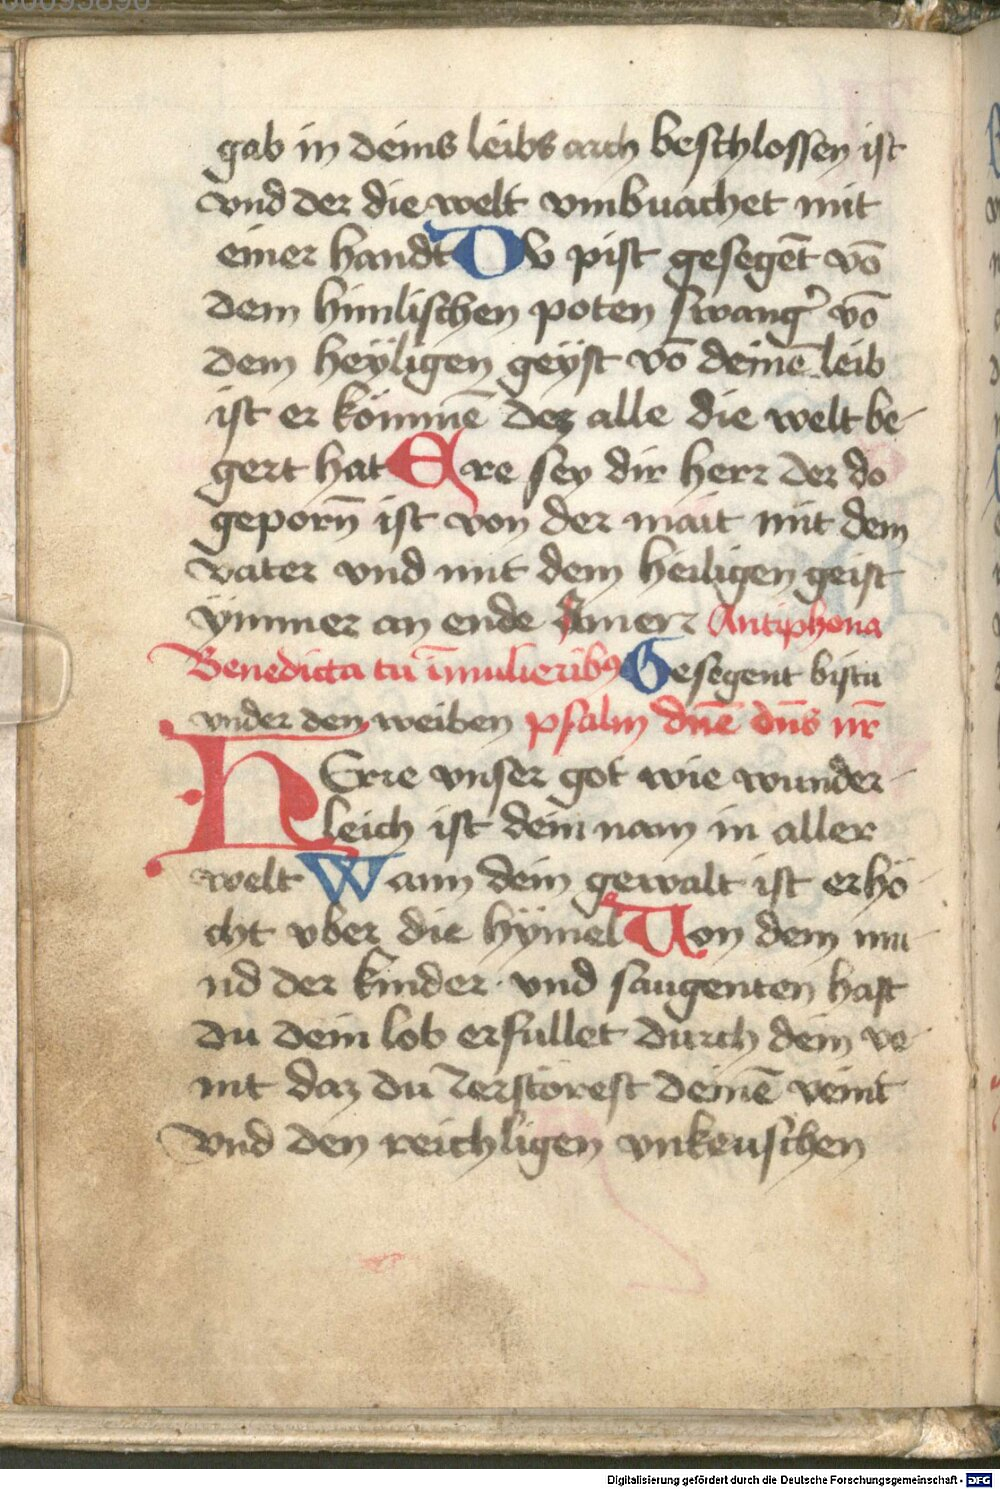 gab in deins leibs arch beschlossen ist
vnd der die welt vmbuachet mit
einer handt DV pist gesegēt vō
dem himlischen poten swang͛ vō
dem heyligen geyst vō deinē leib
ist er kömmē dez alle die welt be-
gert hat Ere sey dir herr der do
geporn̄ ist von der mait mit dem
vater vnd mit dem heiligen geist
ymmer an ende Amenn Antiphona
Benedicta tu ī mulieribꝯ Gesegent bistu
vnder den weiben psalm dn̄e dn̄s nr̄
HErre vnser got wie wunder-
leich ist dein nam in aller
welt Wann dein gewalt ist erhö-
cht vber die hymel Von dem mu-
nd der kinder vnd saugenten hast
du dein lob erfullet durch dein ve-
int daz du zerstorest deinē veint
Vnd den reichligen vnkeuschen
Digitalisierung gefördert durch die Deutsche Forschungsgemeinschaft - DFG